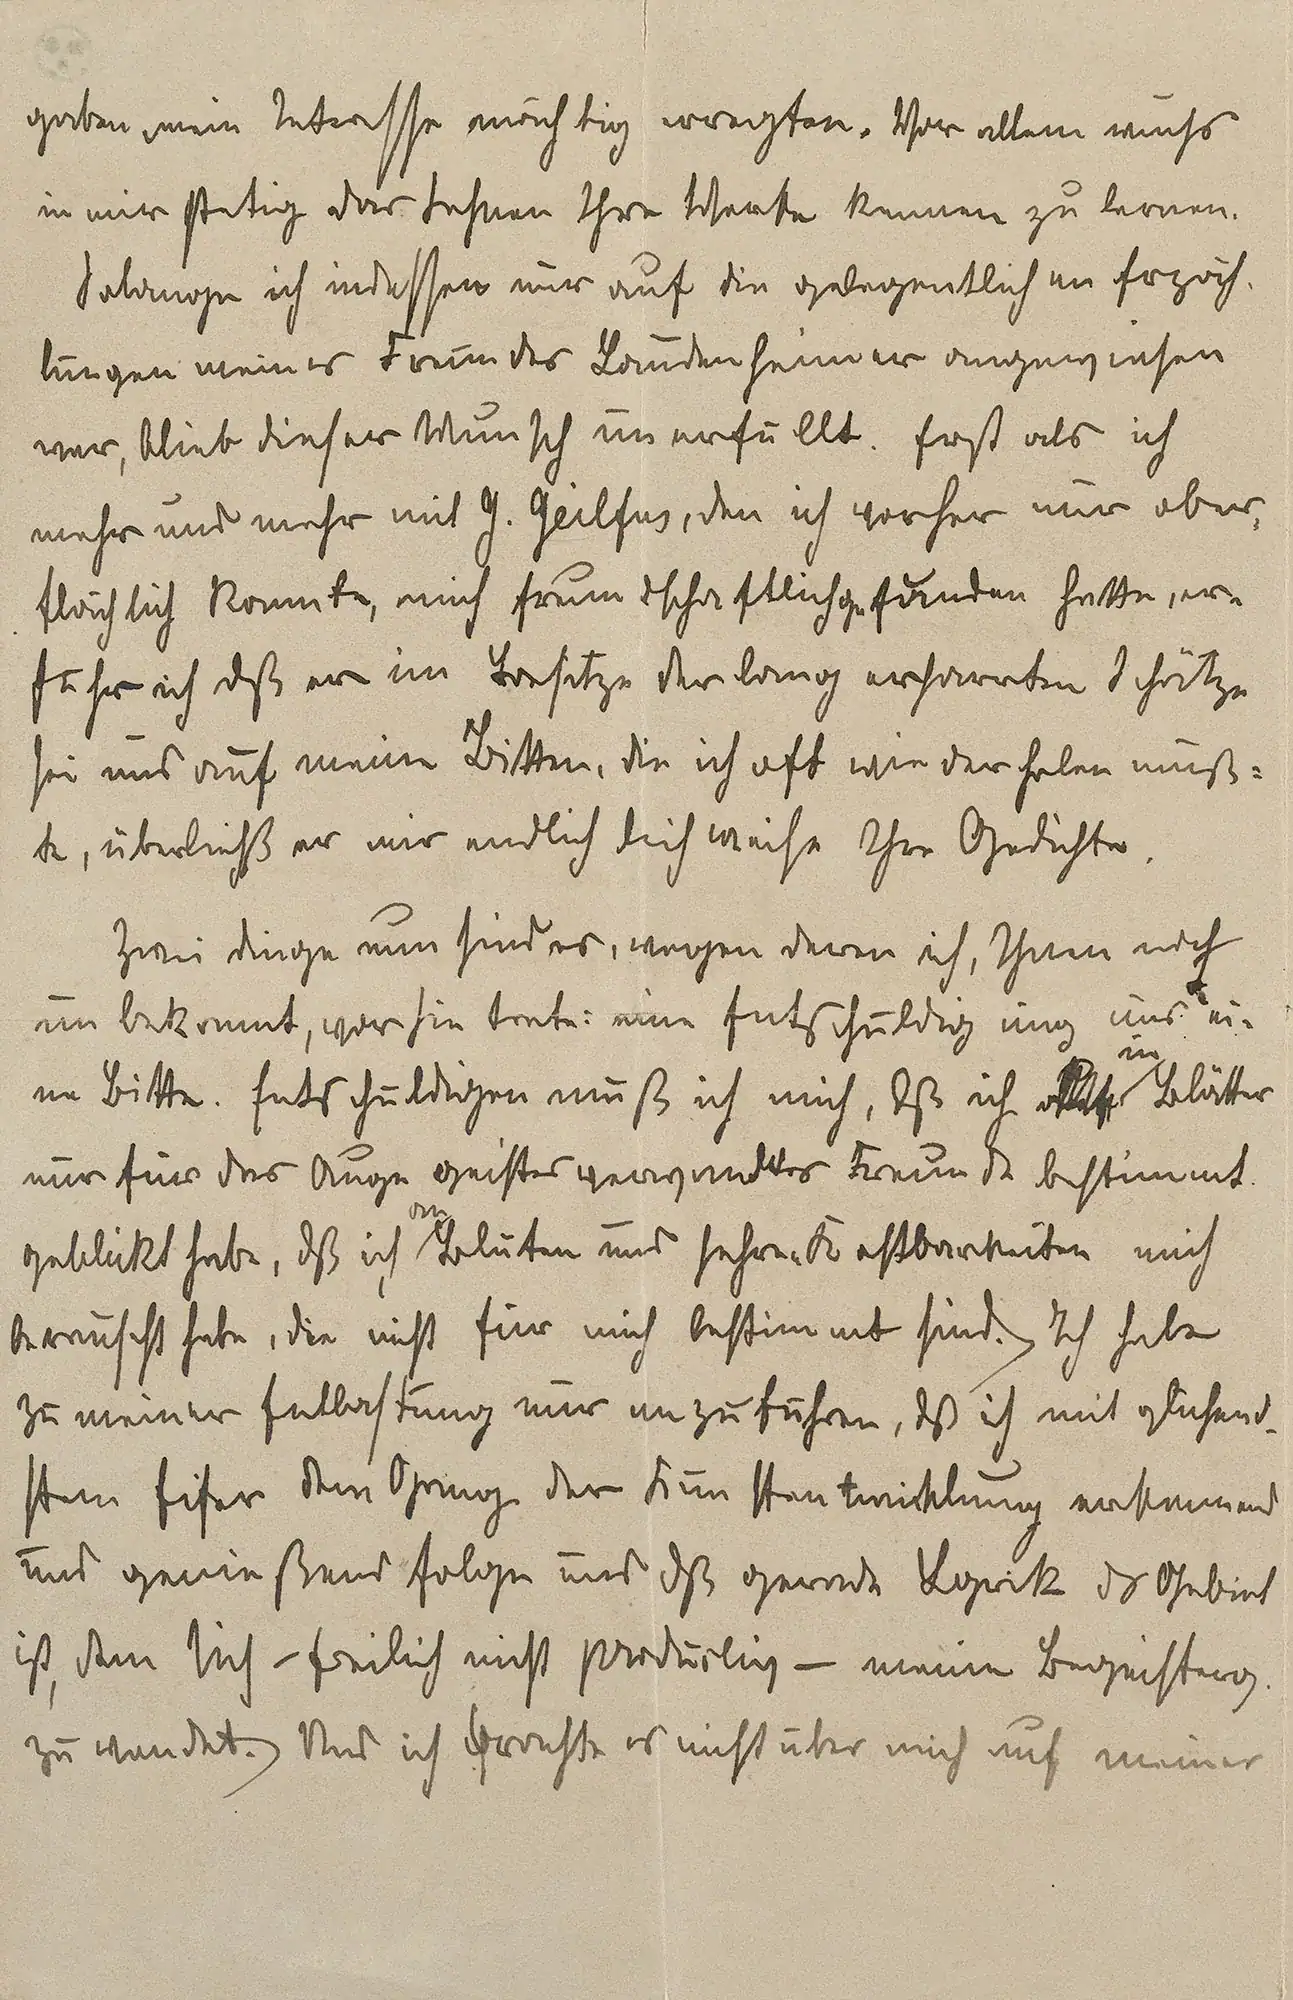 gaben, mein Interesse mächtig erregten. Vor allem wuchs
in mir stetig das Sehnen Ihre Werke kennen zu lernen.
Solange ich indessen nur auf die gelegentlichen Erzäh-
lungen meines Freundes Laudenheimer angewiesen
war, blieb dieser Wunsch unerfüllt. Erst als ich
mehr und mehr mit G. Geilfus, den ich vorher nur ober-
flächlich kannte, mich freundschaftlich gefunden hatte, er-
fuhr ich dß er im Besitze der lang erharrten Schätze
sei und auf meine Bitten, die ich oft wiederholen muß=
te, überließ er mir endlich leihweise Ihre Gedichte.
Zwei dinge nun sind es, wegen deren ich, Ihnen noch
unbekannt, vor Sie trete: eine Entschuldigung und ei-
ne Bitte. Entschuldigen muß ich mich, dß ich in Blätter
nur für das Auge geistesverwandter Freunde bestimmt
geblickt habe, dß ich an Blüten und Kostbarkeiten mich
berauscht habe, die nicht für mich bestimmt sind. Ich habe
zu meiner Entlastung nur anzuführen, dß ich mit glühend-
stem Eifer dem Gang der Kunstentwicklung erkennend
und genießend folge und dß gerade Lyrik ds Gebiet
ist, dem sich – freilich nicht produktiv – meine Begeisterg.
zuwendet. Und ich brachte es nicht über mich auf meiner